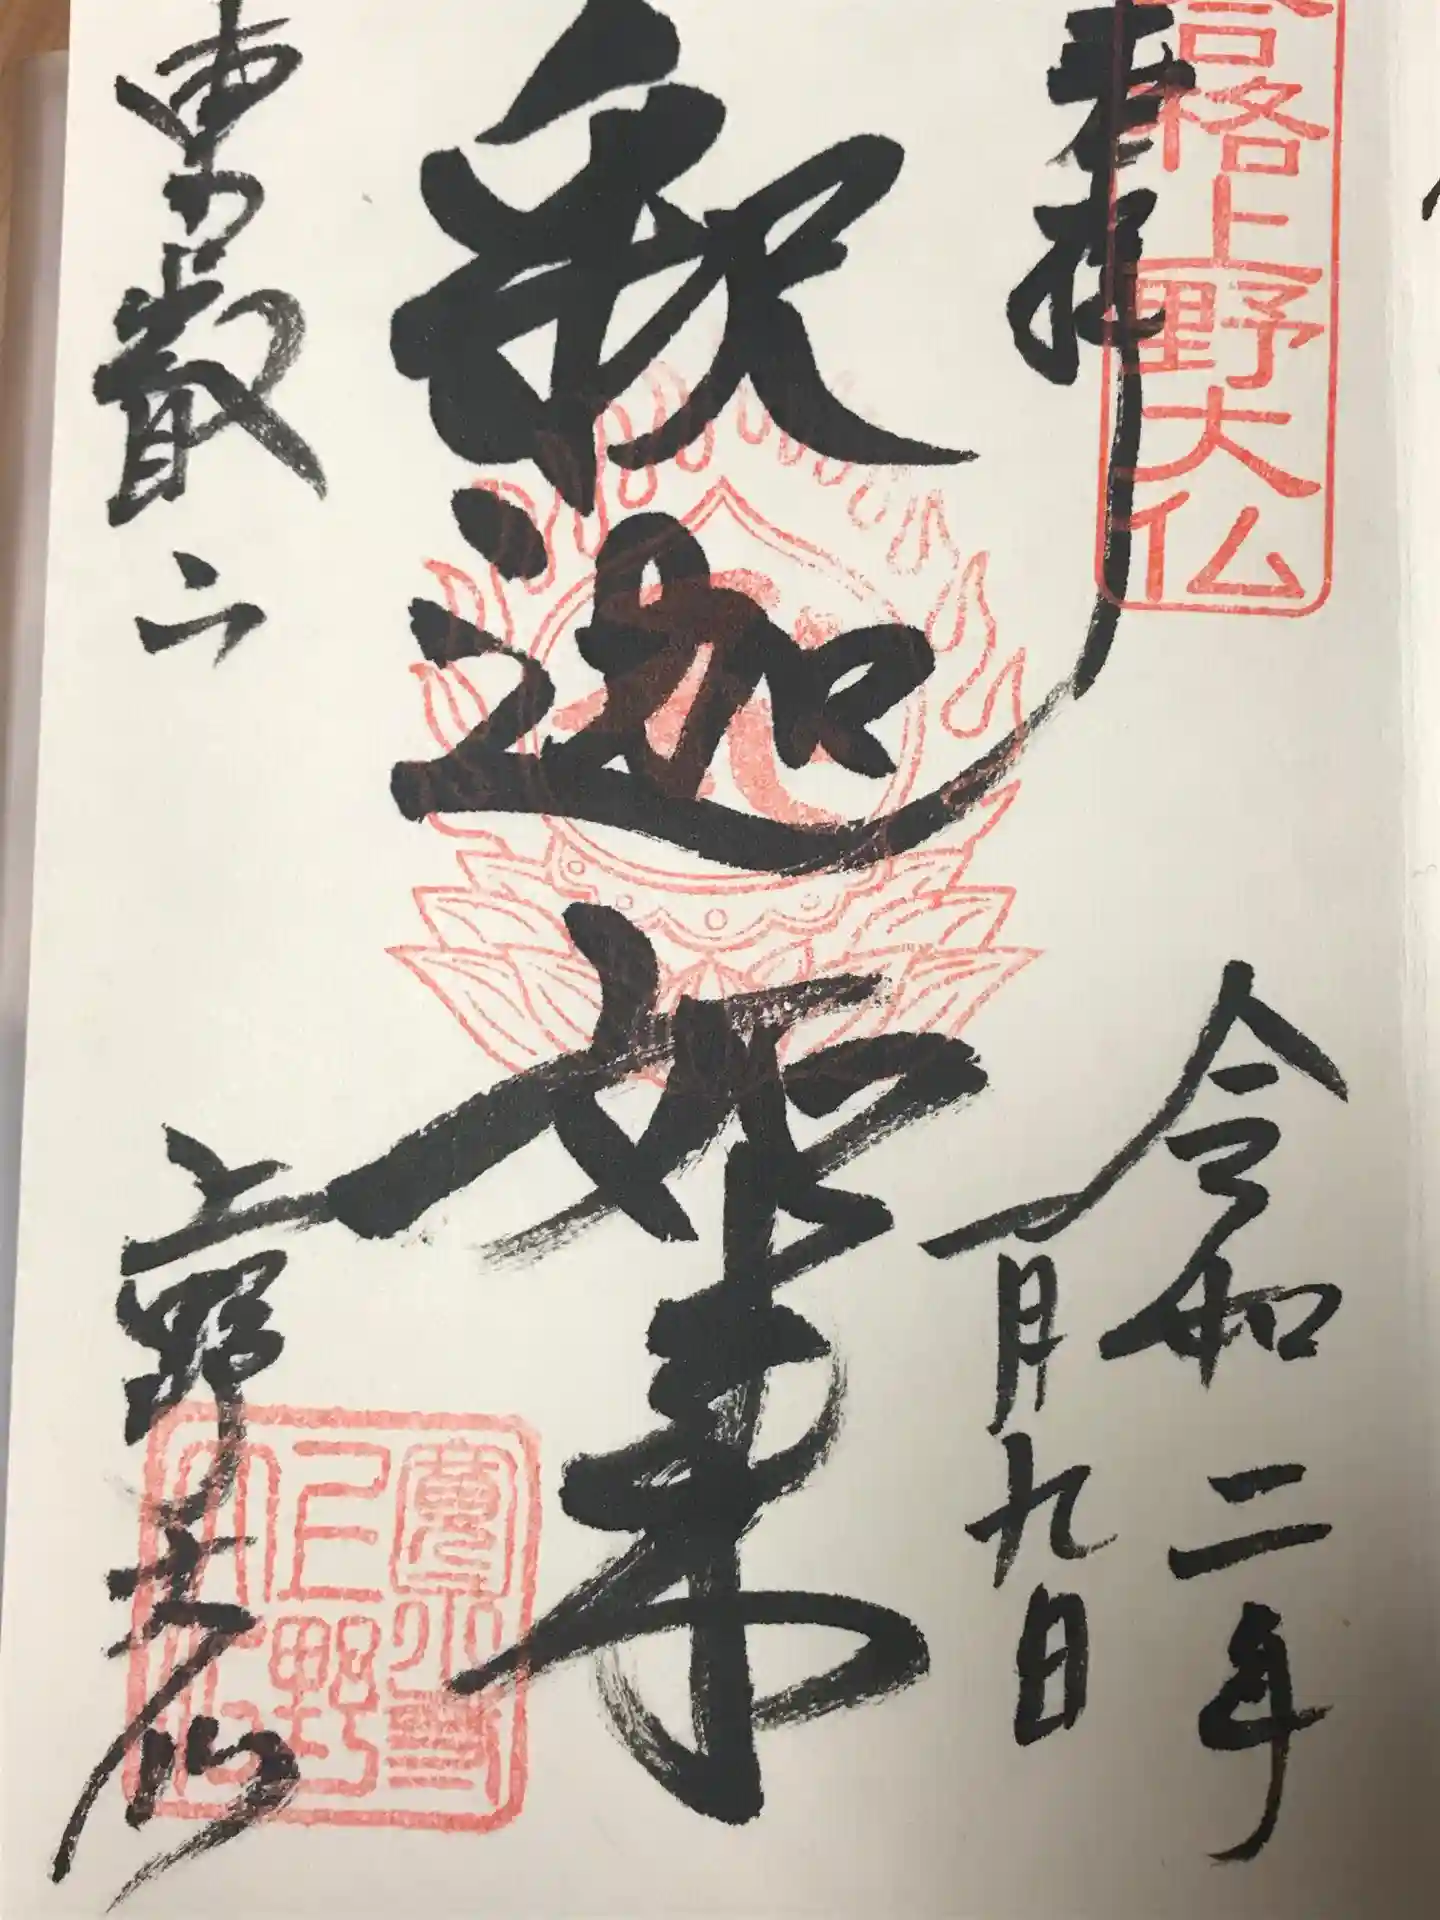 合格上野大仏
奉拝
令和二年
一月九日
釈迦如来
東叡山
上野大仏
寛永寺
上野
大仏